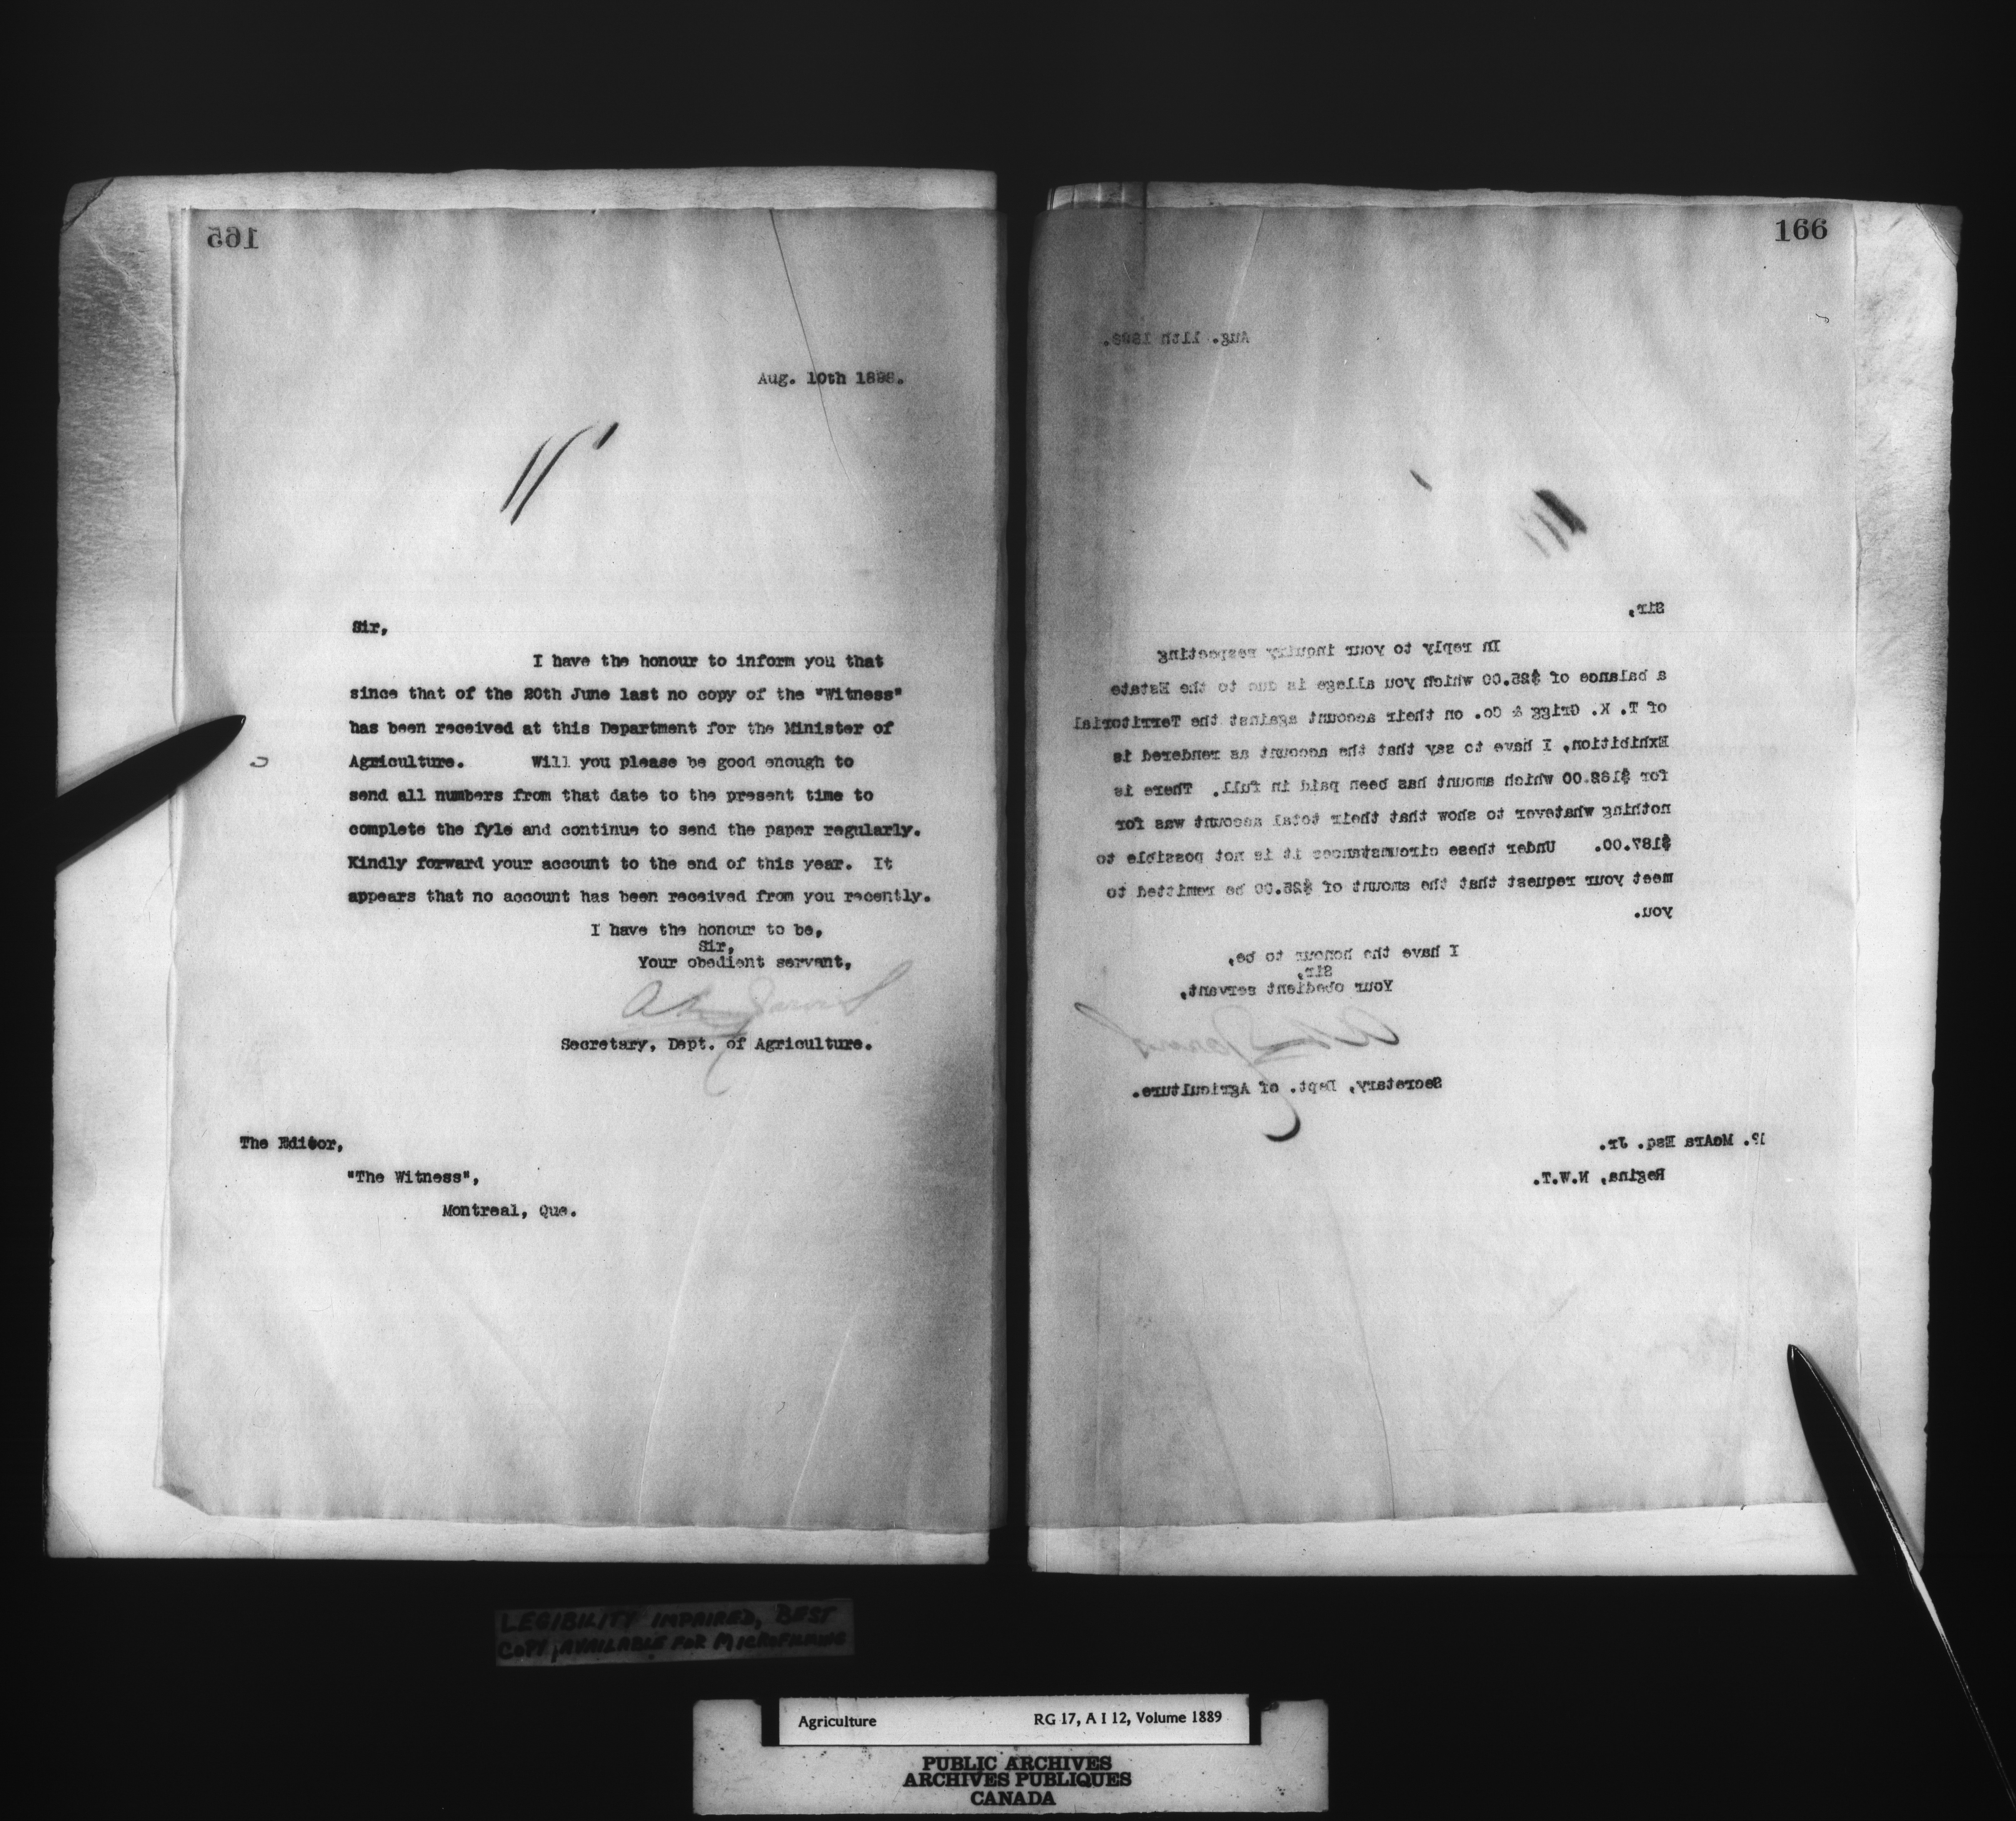 165
Aug. 10th 1898.
Sir,
I have the honour to inform you that
since that of the 20th June last no copy of the "Witness"
has been received at this Department for the Minister of
Agriculture. Will you please be good enough to
send all numbers from that date to the present time to
complete the fyle and continue to send the paper regularly.
Kindly forward your account to the end of this year. It
appears that no account has been received from you recently.
I have the honour to be,
Sir,
Your obedient servant,
Secretary, Dept. of Agriculture.
The Editor,
"The Witness",
Montreal, Que.
166
Aug. 11th 1898.
Sir,
In reply to your inquiry respecting
a balance of $25.00 which you allege is due to the Estate
of T. K. Grigg & Co. on their account against the Territorial
Exhibition, I have to say that the account as rendered is
for $162.00 which amount has been paid in full. There is
nothing whatever to show that their total account was for
$187.00. Under these circumstances it is not possible to
meet your request that the amount of $25.00 be remitted to
you.
I have the honour to be,
Sir,
Your obedient servant,
Secretary, Dept. of Agriculture.
P. McAra Esq. Jr.
Regina, N.W.T.
LEGIBILITY IMPAIRED, BEST
COPY AVAILABLE FOR MICROFILMING
Agriculture RG 17, A I 12, Volume 1889
PUBLIC ARCHIVES
ARCHIVES PUBLIQUES
CANADA